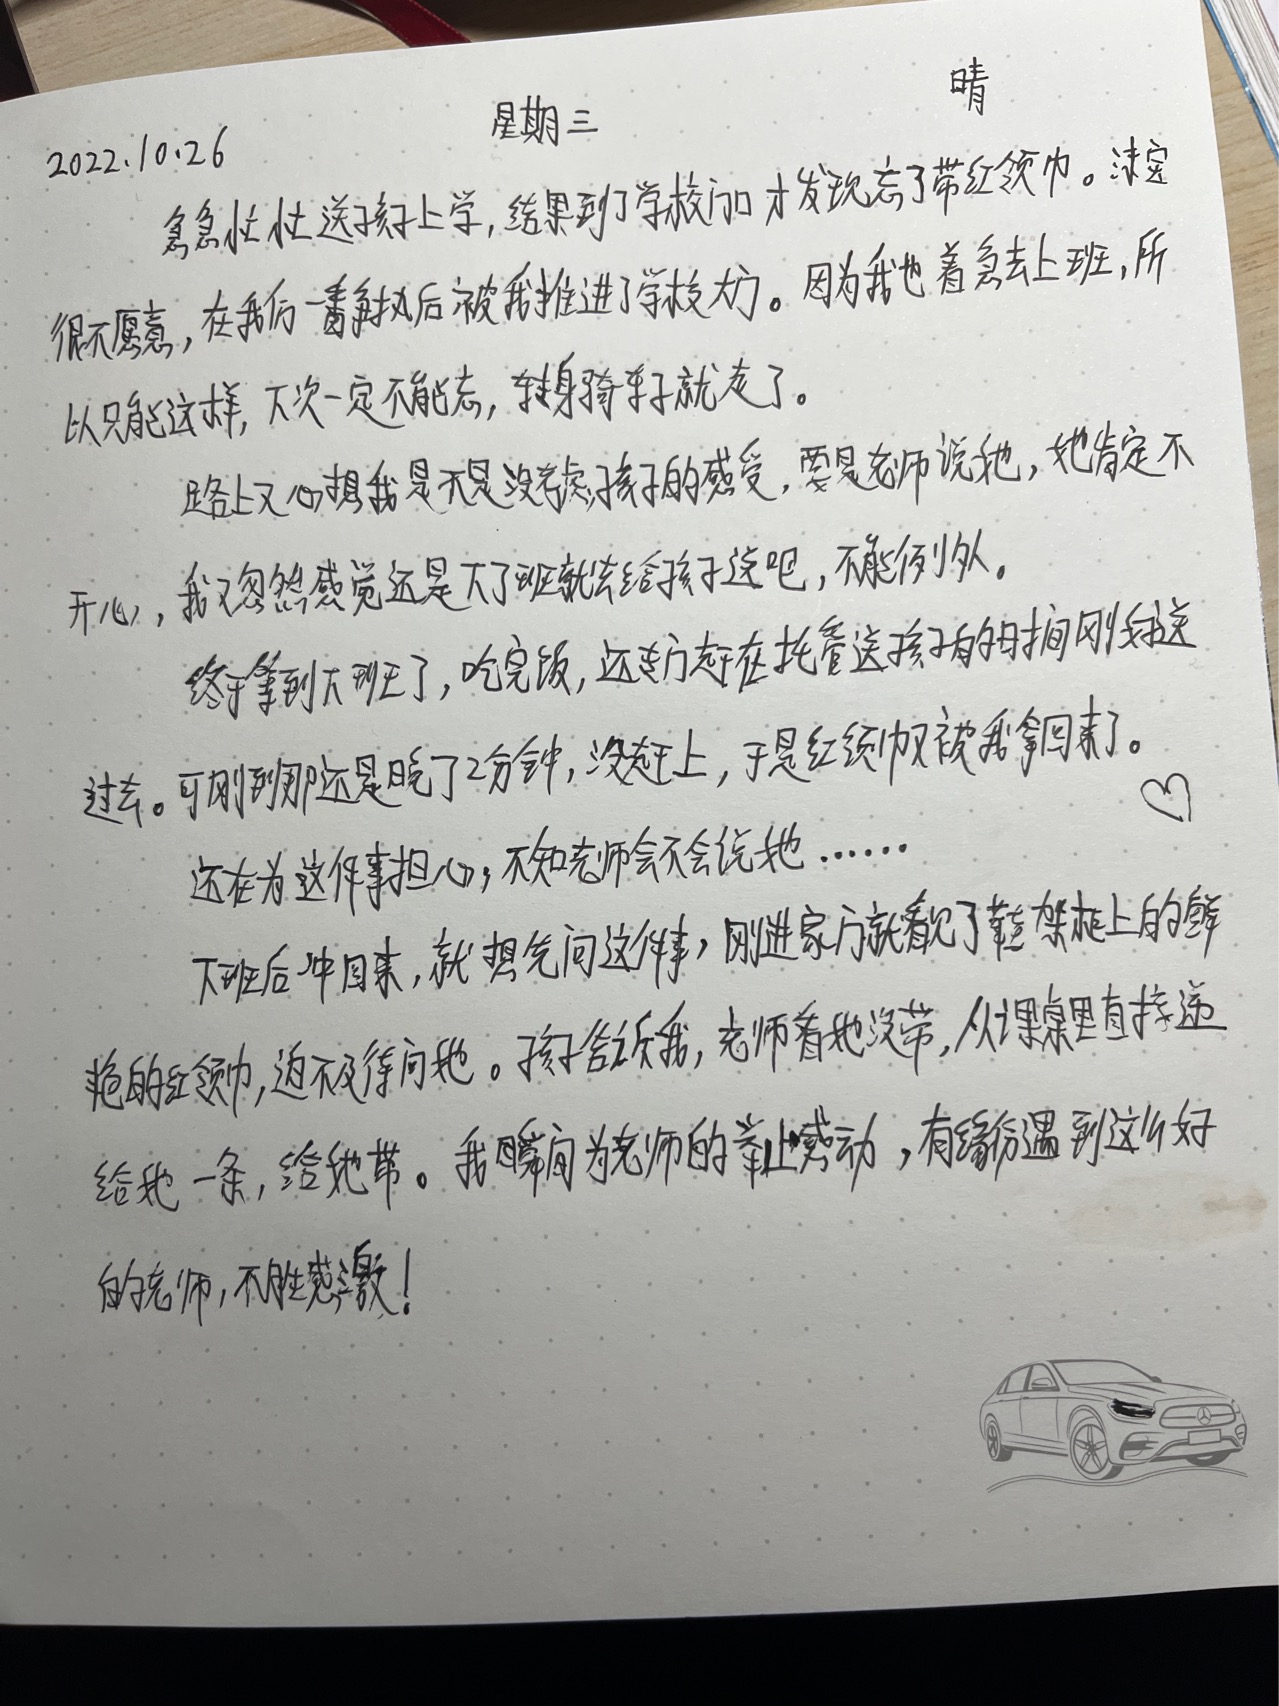 2022.10.26 星期三 晴
急急忙忙送孩子上学,结果到了学校门口才发现忘了带红领巾。涂定
很不愿意,在我们一番争执后被我推进了学校大门。因为我也着急去上班,所
以只能这样,下次一定不能忘,转身骑车子就走了。
路上又心想我是不是没考虑孩子的感受,要是老师说她,她肯定不
开心,我又忽然感觉还是下了班就去给孩子送吧,不能例外。
终于拿到下班了,吃完饭,还专门赶在托管送孩子的时间刚好送
过去。可刚到那还是晚了2分钟,没赶上,于是红领巾又被我拿回来了。
还在为这件事担心,不知老师会不会说她……
下班后冲回来,就想先问这件事,刚进家门就看见了鞋架柜上的鲜
艳的红领巾,迫不及待问她。孩子告诉我,老师看她没带,从课桌里直接递
给她一条,给她带。我瞬间为老师的举止感动,有缘份遇到这么好
的老师,不胜感激!